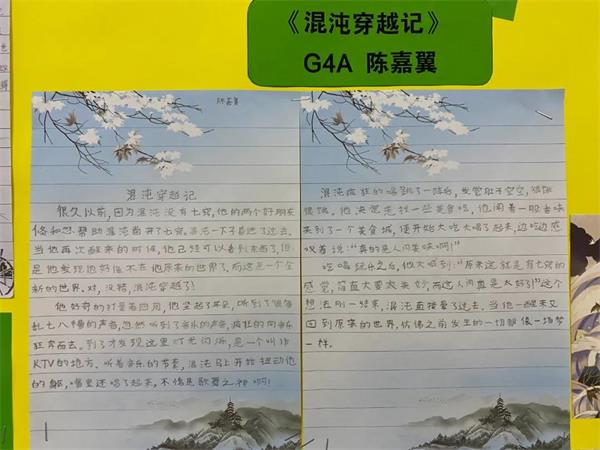 《混沌穿越记》
G4A 陈嘉翼
陈嘉翼
混沌穿越记
很久以前,因为混沌没有七窍,他的两个好朋友
倏和忽帮助混沌凿开了七窍。混沌一下子昏死了过去。
当他再次醒来的时候,他已经可以看到东西了,但
是他发现他好像不在他原来的世界了,而这是一个全
新的世界,对,没错,混沌穿越了!
他好奇的打量着四周,他竖起了耳朵,听到了
乱七八糟的声音,忽然听到了音乐的声音,疯狂的向音乐
狂奔而去。到了才发现这里灯光闪烁,是一个叫作
KTV的地方。听着音乐的节奏,混沌马上开始扭动他
的躯,嘴里还唱了起来,不愧是歌舞之神啊!
混沌疯狂的唱跳了一阵后,发觉肚子空空,
他决定去找一些美食吃,他闻着一股香味
来到了一个美食城,便开始大吃大喝了起来,边吃边感
叹着说:“真的是人间美味啊!”
吃喝玩乐之后,他大喊到:“原来这就是有七窍的
感觉,简直太要太美好,而这人间真是太好了!”这个
想法刚一结束,混沌直接晕了过去。当他一醒来又
回到原来的世界,仿佛之前发生的一切都像一场梦
一样。